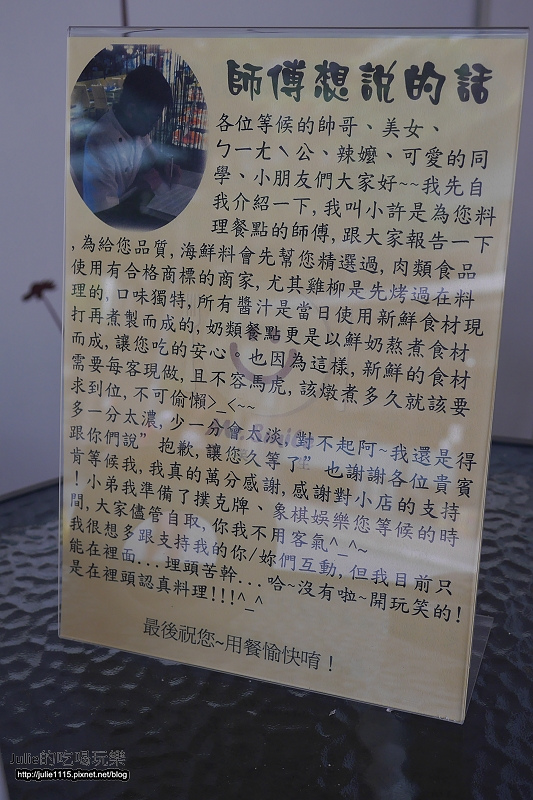 師傅想說的話
各位等候的帥哥、美女、
ㄅㄧㄤヽ公、辣嬤、可愛的同
學、小朋友們大家好~~我先自
我介紹一下,我叫小許是為您料
理餐點的師傅,跟大家報告一下
,為給您品質,海鮮料會先幫您精選過,肉類食品
使用有合格商標的商家,尤其雞柳是先烤過在料
理的,口味獨特,所有醬汁是當日使用新鮮食材現
打再煮製而成的,奶類餐點更是以鮮奶熬煮食材
而成,讓您吃的安心。也因為這樣,新鮮的食材
需要每客現做,且不容馬虎,該燉煮多久就該要
求到位,不可偷懶>_<~~
多一分太濃,少一分會太淡,對不起阿~我還是得
跟你們說”抱歉,讓您久等了”也謝謝各位貴賓
肯等候我,我真的萬分感謝,感謝對小店的支持
！小弟我準備了撲克牌、象棋娛樂您等候的時
間,大家儘管自取,你我不用客氣^_^~
我很想多跟支持我的你/妳們互動,但我目前只
能在裡面...埋頭苦幹...哈~沒有啦~開玩笑的！
是在裡頭認真料理!!!^_^
最後祝您~用餐愉快唷！
Julie的吃喝玩樂
http://julie1115.pixnet.net/blog